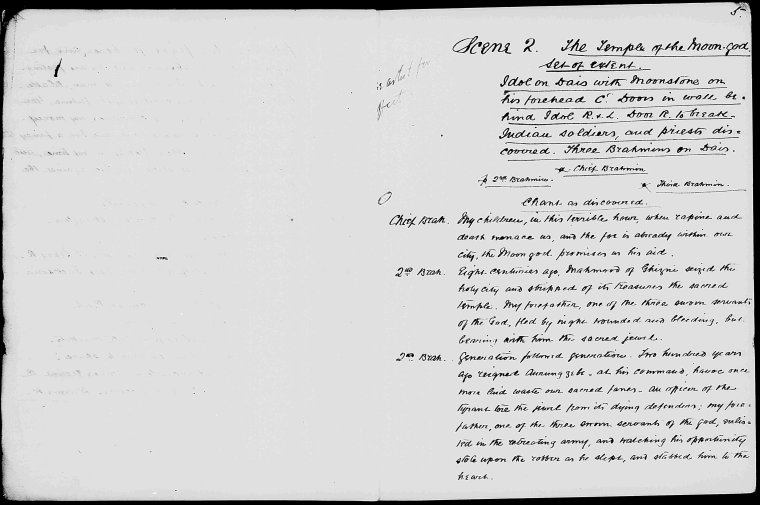 5.
Scene 2. The Temple of the Moon-god
set of extent.
Idol on Dais with Moonstone on
his forehead C. Doors in wall be-
hind Idol R. & L. Door R. to break-
Indian soldiers, and priests dis-
covered. Three Brahmins on Dais.
Chief Brahmin
2nd Brahmin
Third Brahmin.
Chant as discovered.
Chief Brah. My children, in this terrible hour when rapine and
death menace us, and the foe is already within our
city, the Moon god promises us his aid.
2nd Brah. Eight centuries ago, Mahmoud of Ghizni seized the
holy city and stripped of its treasures the sacred
temple. My forefather, one of the three sworn servants
of the God, fled by night wounded and bleeding, but
bearing with him the sacred jewel.
2nd Brah. Generation followed generation. Two hundred years
ago reigned Aurungzebe - at his command, havoc once
more laid waste our sacred fanes - an officer of the
tyrant tore the jewel from its dying defenders; my fore-
father, one of the three sworn servants of the god, enlis-
ted in the retreating army, and watching his opportunity
stole upon the robber as he slept, and stabbed him to the
heart.